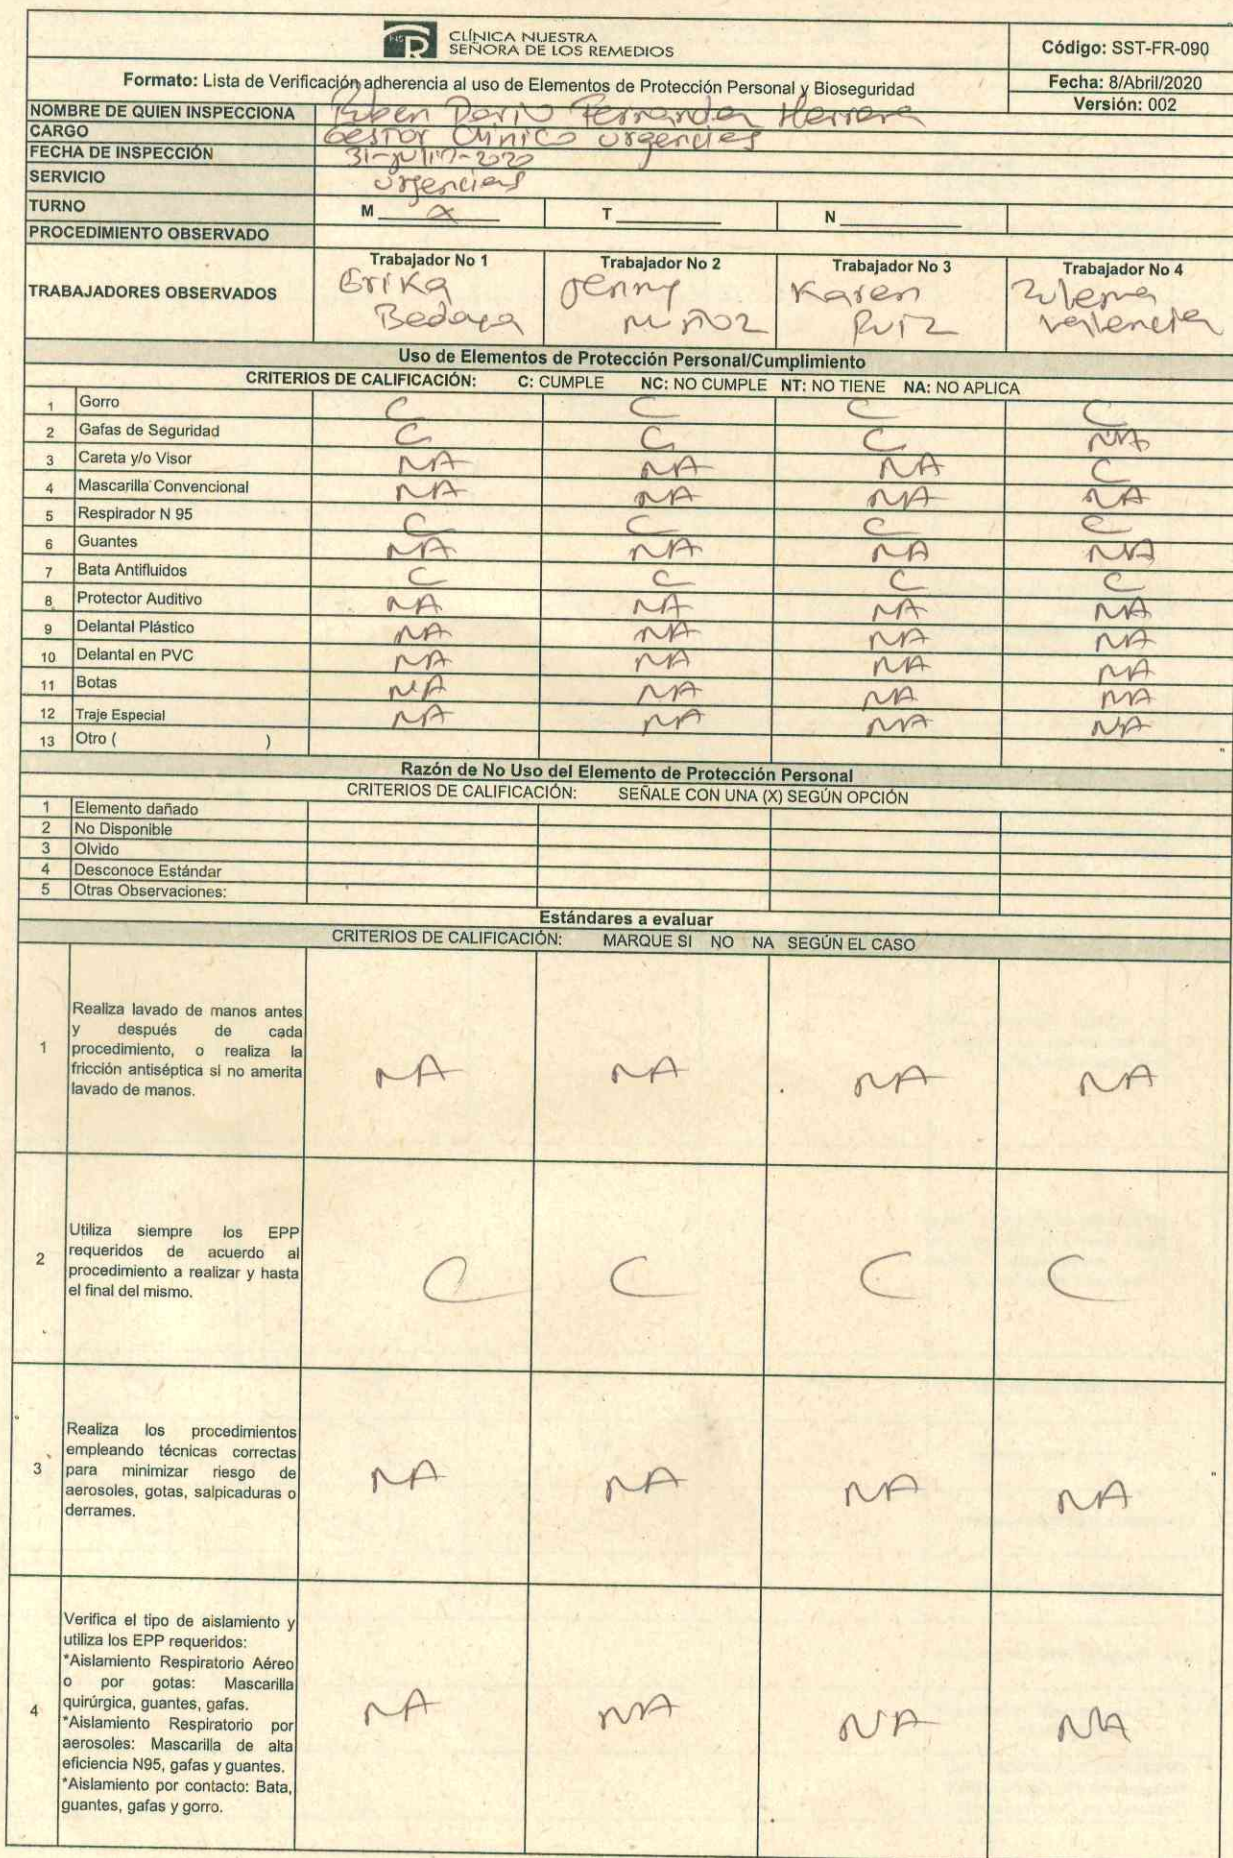 CLÍNICA NUESTRA
SEÑORA DE LOS REMEDIOS
Código: SST-FR-090
Formato: Lista de Verificación adherencia al uso de Elementos de Protección Personal y Bioseguridad
Fecha: 8/Abril/2020
Versión: 002
NOMBRE DE QUIEN INSPECCIONA Ruben Dario Fernandez Herrera
CARGO Gestor Clinico urgencias
FECHA DE INSPECCIÓN 31-Julio-2020
SERVICIO urgencias
TURNO M X T N
PROCEDIMIENTO OBSERVADO
TRABAJADORES OBSERVADOS
Trabajador No 1 Trabajador No 2 Trabajador No 3 Trabajador No 4
Erika Jenny Karen Zulema
Bedoya Muñoz Ruiz Valencia
Uso de Elementos de Protección Personal/Cumplimiento
CRITERIOS DE CALIFICACIÓN: C: CUMPLE NC: NO CUMPLE NT: NO TIENE NA: NO APLICA
1 Gorro C C C C
2 Gafas de Seguridad C C C NA
3 Careta y/o Visor NA NA NA C
4 Mascarilla Convencional NA NA NA NA
5 Respirador N 95 C C C C
6 Guantes NA NA NA NA
7 Bata Antifluidos C C C C
8 Protector Auditivo NA NA NA NA
9 Delantal Plástico NA NA NA NA
10 Delantal en PVC NA NA NA NA
11 Botas NA NA NA NA
12 Traje Especial NA NA NA NA
13 Otro ( )
Razón de No Uso del Elemento de Protección Personal
CRITERIOS DE CALIFICACIÓN: SEÑALE CON UNA (X) SEGÚN OPCIÓN
1 Elemento dañado
2 No Disponible
3 Olvido
4 Desconoce Estándar
5 Otras Observaciones:
Estándares a evaluar
CRITERIOS DE CALIFICACIÓN: MARQUE SI NO NA SEGÚN EL CASO
1
Realiza lavado de manos antes
y después de cada
procedimiento, o realiza la
fricción antiséptica si no amerita
lavado de manos.
NA NA NA NA
2
Utiliza siempre los EPP
requeridos de acuerdo al
procedimiento a realizar y hasta
el final del mismo.
C C C C
3
Realiza los procedimientos
empleando técnicas correctas
para minimizar riesgo de
aerosoles, gotas, salpicaduras o
derrames.
NA NA NA NA
4
Verifica el tipo de aislamiento y
utiliza los EPP requeridos:
*Aislamiento Respiratorio Aéreo
o por gotas: Mascarilla
quirúrgica, guantes, gafas.
*Aislamiento Respiratorio por
aerosoles: Mascarilla de alta
eficiencia N95, gafas y guantes.
*Aislamiento por contacto: Bata,
guantes, gafas y gorro.
NA NA NA NA